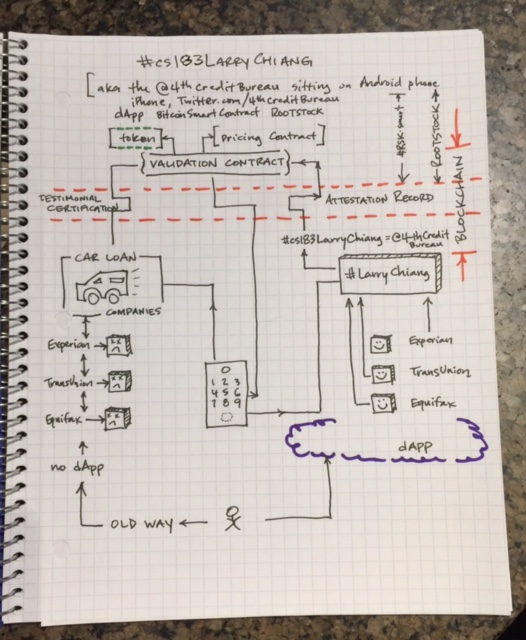 #cs183LARRYCHIANG
[aka the @4thCreditBureau sitting on Android phone
iPhone, Twitter.com/4thCreditBureau
dApp BitcoinSmartContract ROOTSTOCK
[token]
[Pricing Contract]
{VALIDATION CONTRACT}
#RSKsmart
ROOTSTOCK
BLOCKCHAIN
TESTIMONIAL
CERTIFICATION
ATTESTATION RECORD
#cs183LarryChiang = @4thCredit
Bureau
CAR LOAN
COMPANIES
#LarryChiang
Experian
TransUnion
Equifax
Experian
TransUnion
Equifax
1 2 3
4 5 6
7 8 9
no dApp
dAPP
OLD WAY